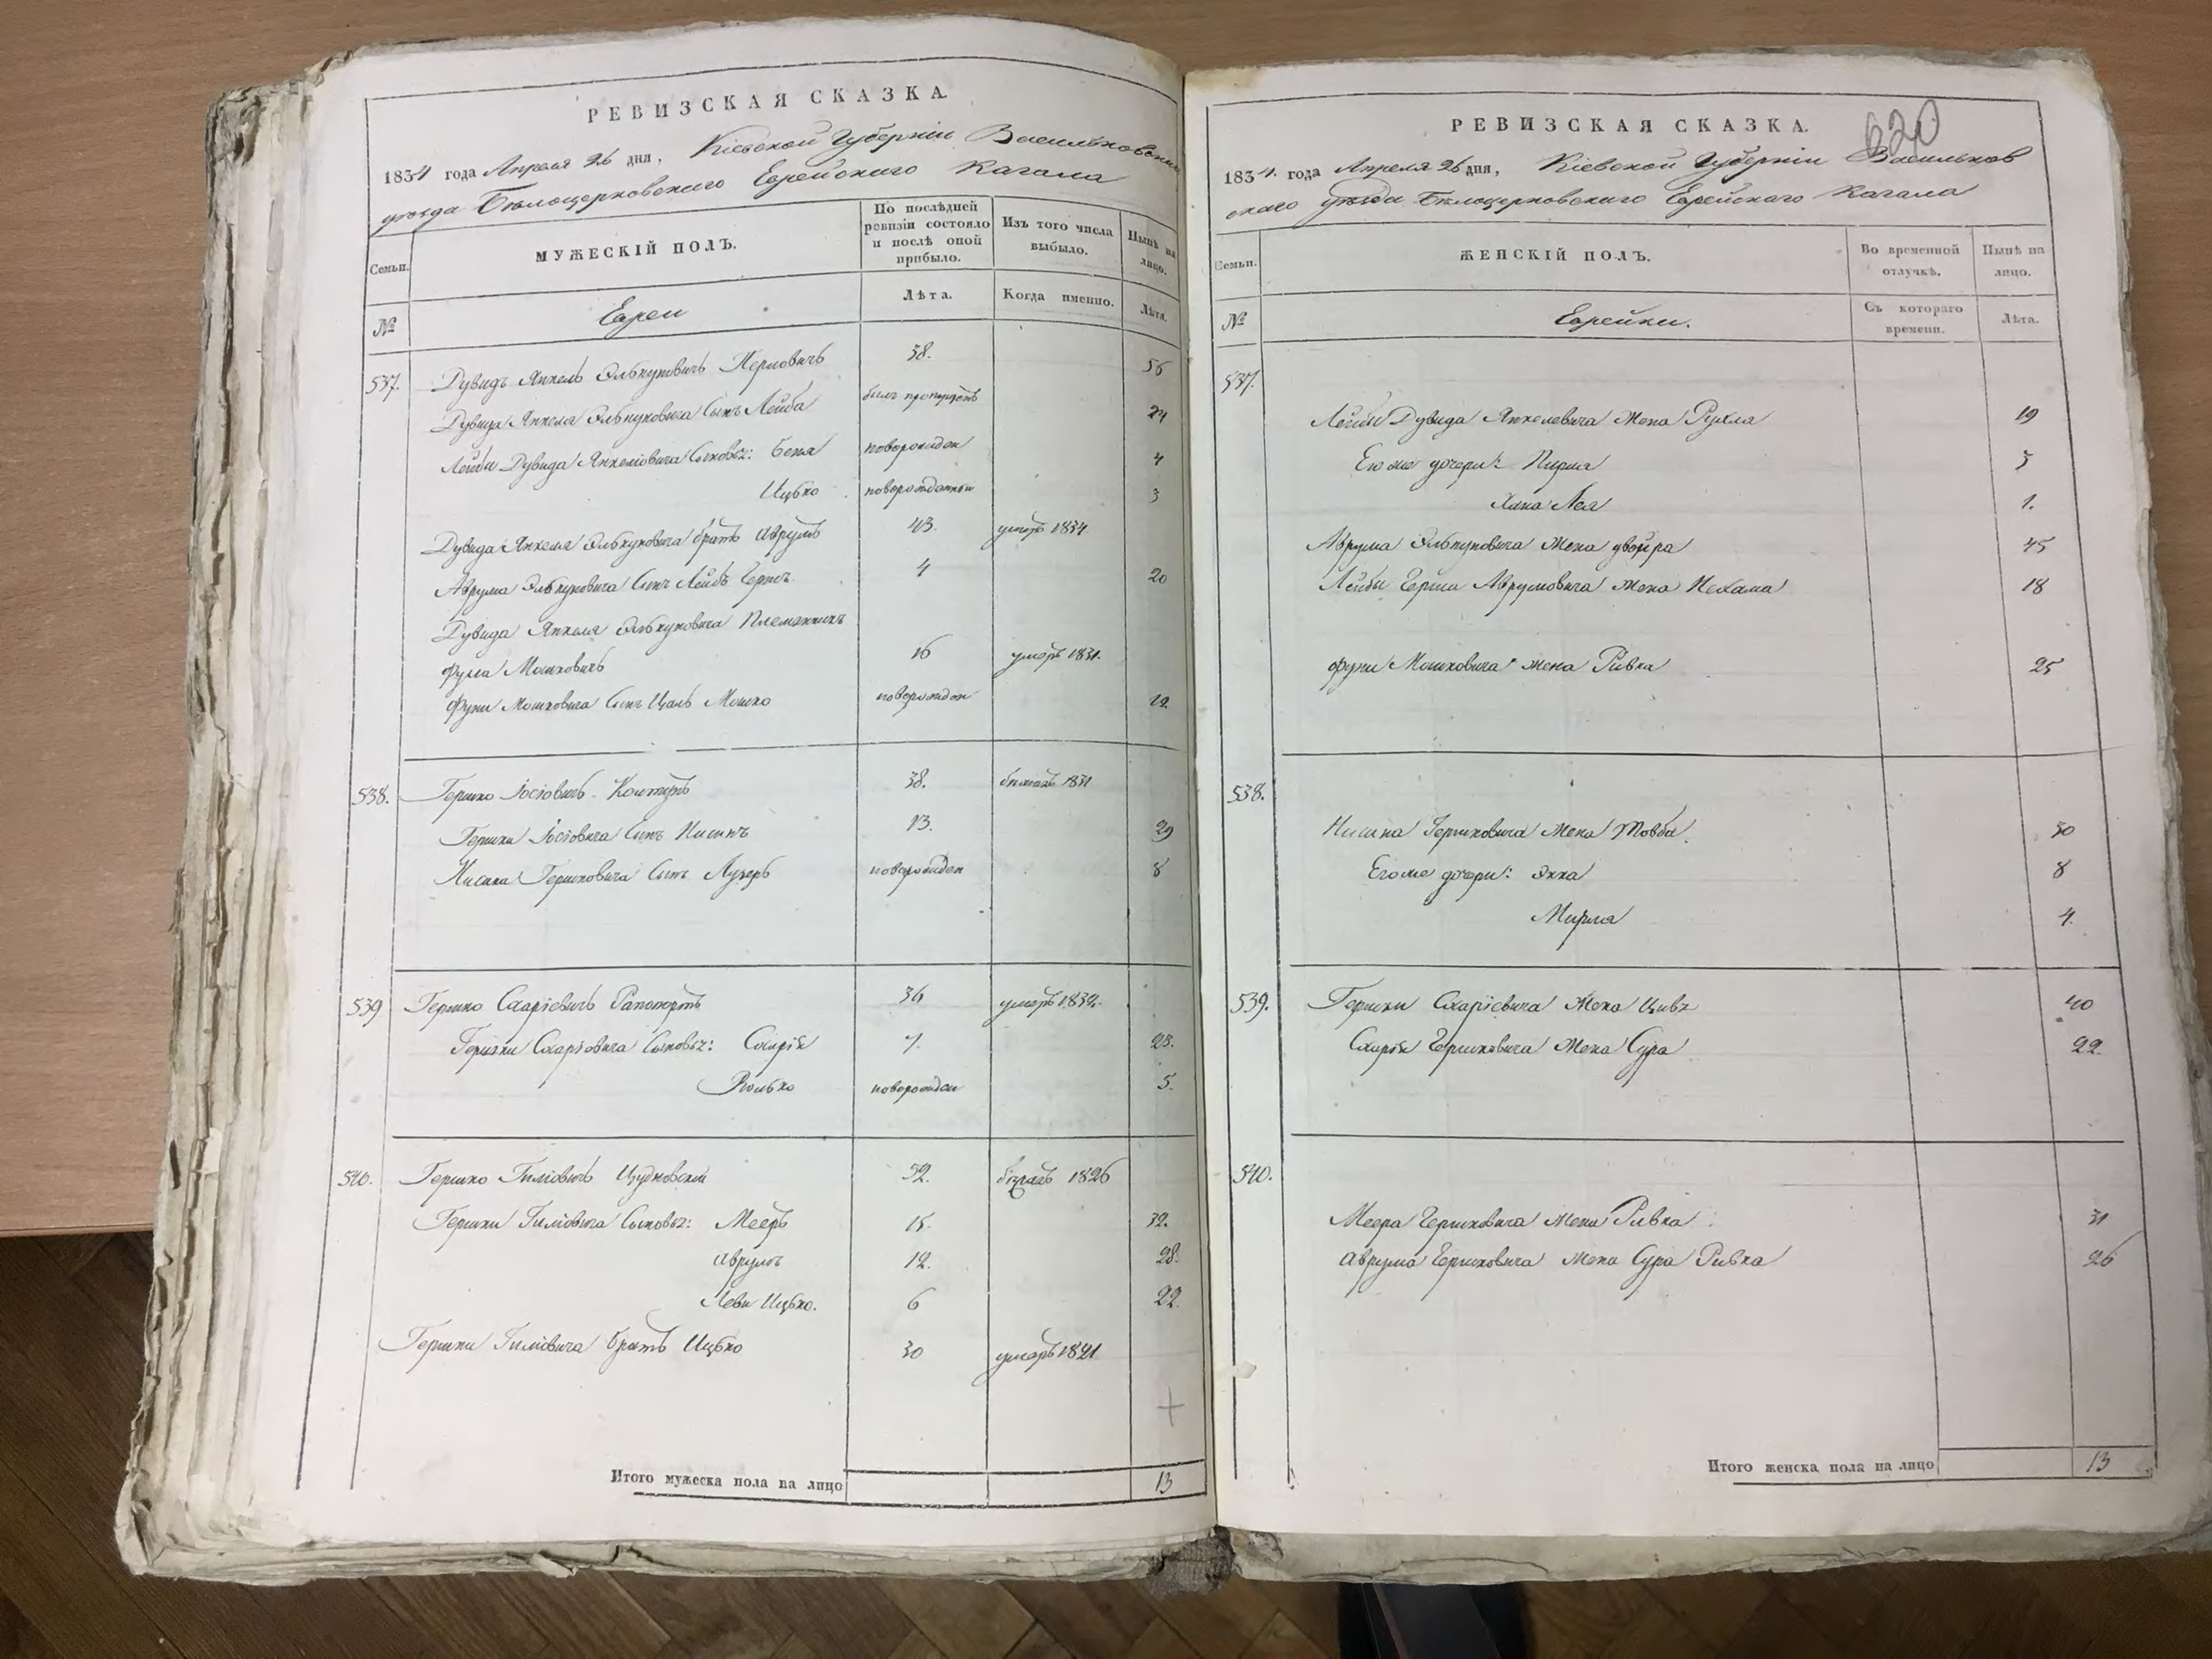 РЕВИЗСКАЯ СКАЗКА.
1834 года Апреля 26 дня, Кіевской Губерніи Васильковскаго
уѣзда Бѣлоцерковскаго Еврейскаго Кагала
Семьи. МУЖЕСКІЙ ПОЛЪ. По послѣдней ревизіи состояло и послѣ оной прибыло. Изъ того числа выбыло. Нынѣ на лицо.
№ Евреи Лѣта. Когда именно. Лѣта.
537. Дувидъ Янкель Элькуновичъ 38. 56
Дувида Янкеля Элькуновича Сынъ Лейба былъ пропущенъ 24
Лейбы Дувида Янкелювича Сыновья: Беня новорожден 4
Ицько новорожденный 3
Дувида Янкеля Элькуновича братъ Аврумъ 43. умеръ 1834
Аврума Элькуновича Сынъ Лейбъ Гершъ 4 20
Дувида Янкеля Элькуновича Племянникъ
Мошковичъ 16 умеръ 1831.
Мошковича Сынъ Мошко новорожден 12.
538. Гершко Іосіовичъ 38. 1831
Гершки Іосіовича Сынъ Нисинъ 13. 29
Нисина Гершковича Сынъ Лузеръ новорожден 8
539 Гершко Схаріевичъ Рапопортъ 36 умеръ 1832.
Гершки Схаріовича Сыновья: Схарія 7. 23.
новорожден 5.
540. Гершко Гилювичъ 32. бѣжалъ 1826
Гершки Гилювича Сыновья: Мееръ 15. 32.
Аврумъ 12. 28.
Леви Ицько. 6 22.
Гершки Гилювича братъ Ицько 30 умеръ 1821
Итого мужеска пола на лицо 13
620
РЕВИЗСКАЯ СКАЗКА.
1834. года Апреля 26 дня, Кіевской Губерніи Васильков
скаго уѣзда Бѣлоцерковскаго Еврейскаго Кагала
Семьи. ЖЕНСКІЙ ПОЛЪ. Во временной отлучкѣ. Нынѣ на лицо.
№ Еврейки. Съ котораго времени. Лѣта.
537.
Лейбы Дувида Янкелевича Жена Рухля 19
Его же дочери: 3
Хана Лея 1.
Аврума Элькуновича Жена двойра 45
Лейбы Герша Аврумовича Жена Нехама 18
Мошковича жена Ривка 25
538.
Нисина Гершковича Жена Товба. 30
Его же дочери: Энка 8
Мирля 4.
539. Гершки Схаріевича Жена Цивя 40
Схарія Гершковича Жена Сура 22.
540.
Меера Гершковича Жена Ривка 31
Аврума Гершковича Жена Сура Ривка 26
Итого женска пола на лицо 13